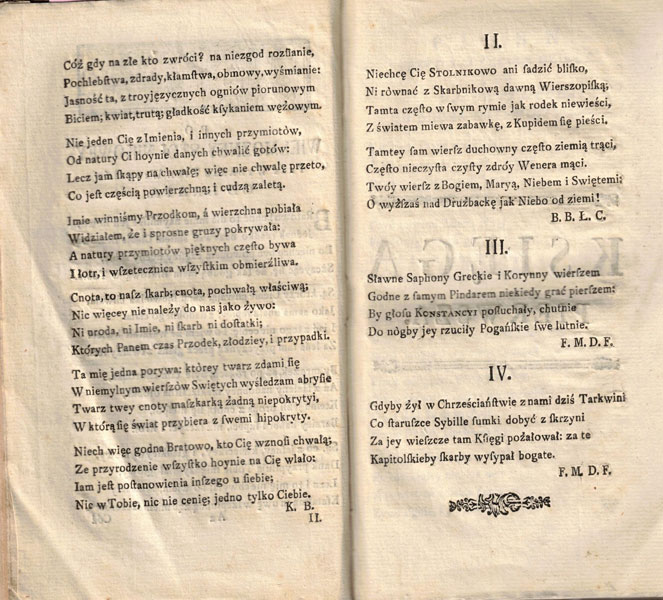 Cóż gdy na złe kto zwróci? na niezgod rozſianie,
Pochlebſtwa, zdrady, kłamſtwa, obmowy, wyśmianie:
Jasność ta, z troyjęzycznych ogniów piorunowym
Biciem; kwiat, trutą; gładkość kſykaniem wężowym.
Nie jeden Cię z Imienia, i innych przymiotów,
Od natury Ci hoynie danych chwalić gotów:
Lecz jam ſkąpy na chwałę; więc nie chwalę przeto,
Co jeſt częścią powierzchną; i cudzą zaletą.
Imie winniśmy Przodkom, á wierzchna pobiała
Widziałem, że i sprosne gruzy pokrywała:
A natury przymiotów pięknych często bywa
I łotr, i wſzetecznica wſzyſtkim obmierźliwa.
Cnota, to naſz ſkarb; cnota, pochwałą właściwą;
Nic więcey nie należy do nas jako żywo:
Ni uroda, ni Imie, ni ſkarb ni doſtatki;
Których Panem czas Przodek, złodziey, i przypadki.
Ta mię jedna porywa: którey twarz zdami ſię
W niemylnym wierſzów Swiętych wyśledzam abryſie
Twarz twey cnoty maſzkarką żadną niepokrytyi,
W którą ſię świat przybiera z ſwemi hipokryty.
Niech więc godna Bratowo, kto Cię wznoſi chwałą;
Ze przyrodzenie wſzyſtko hoynie na Cię wlało:
Iam jeſt poſtanowienia inſzego u ſiebie;
Nic w Tobie, nic nie cenię; jedno tylko Ciebie.
K. B.
II.
II.
Niechcę Cię STOLNIKOWO ani ſadzić bliſko,
Ni równać z Skarbnikową dawną Wierszopiſką;
Tamta często w ſwym rymie jak rodek niewieści,
Z światem miewa zabawkę, z Kupidem ſię pieści.
Tamtey ſam wierſz duchowny często ziemią trąci,
Często nieczyſta czyſty zdróy Wenera mąci.
Twóy wierſz z Bogiem, Maryą, Niebem i Swiętemi;
O wyżſzaś nad Drużbackę jak Niebo od ziemi!
B. B. Ł. C.
III.
Sławne Saphony Greckie i Korynny wierſzem
Godne z ſamym Pindarem niekiedy grać pierſzem:
By głoſu KONSTANCYI poſłuchały, chutnie
Do nógby jey rzuciły Pogańſkie ſwe lutnie.
F. M. D. F.
IV.
Gdyby żył w Chrześciańſtwie z nami dziś Tarkwini
Co ſtaruſzce Sybille ſumki dobyć z skrzyni
Za jey wieſzcze tam Kſięgi pożałował: za te
Kapitolſkieby ſkarby wyſypał bogate.
F. M. D. F.